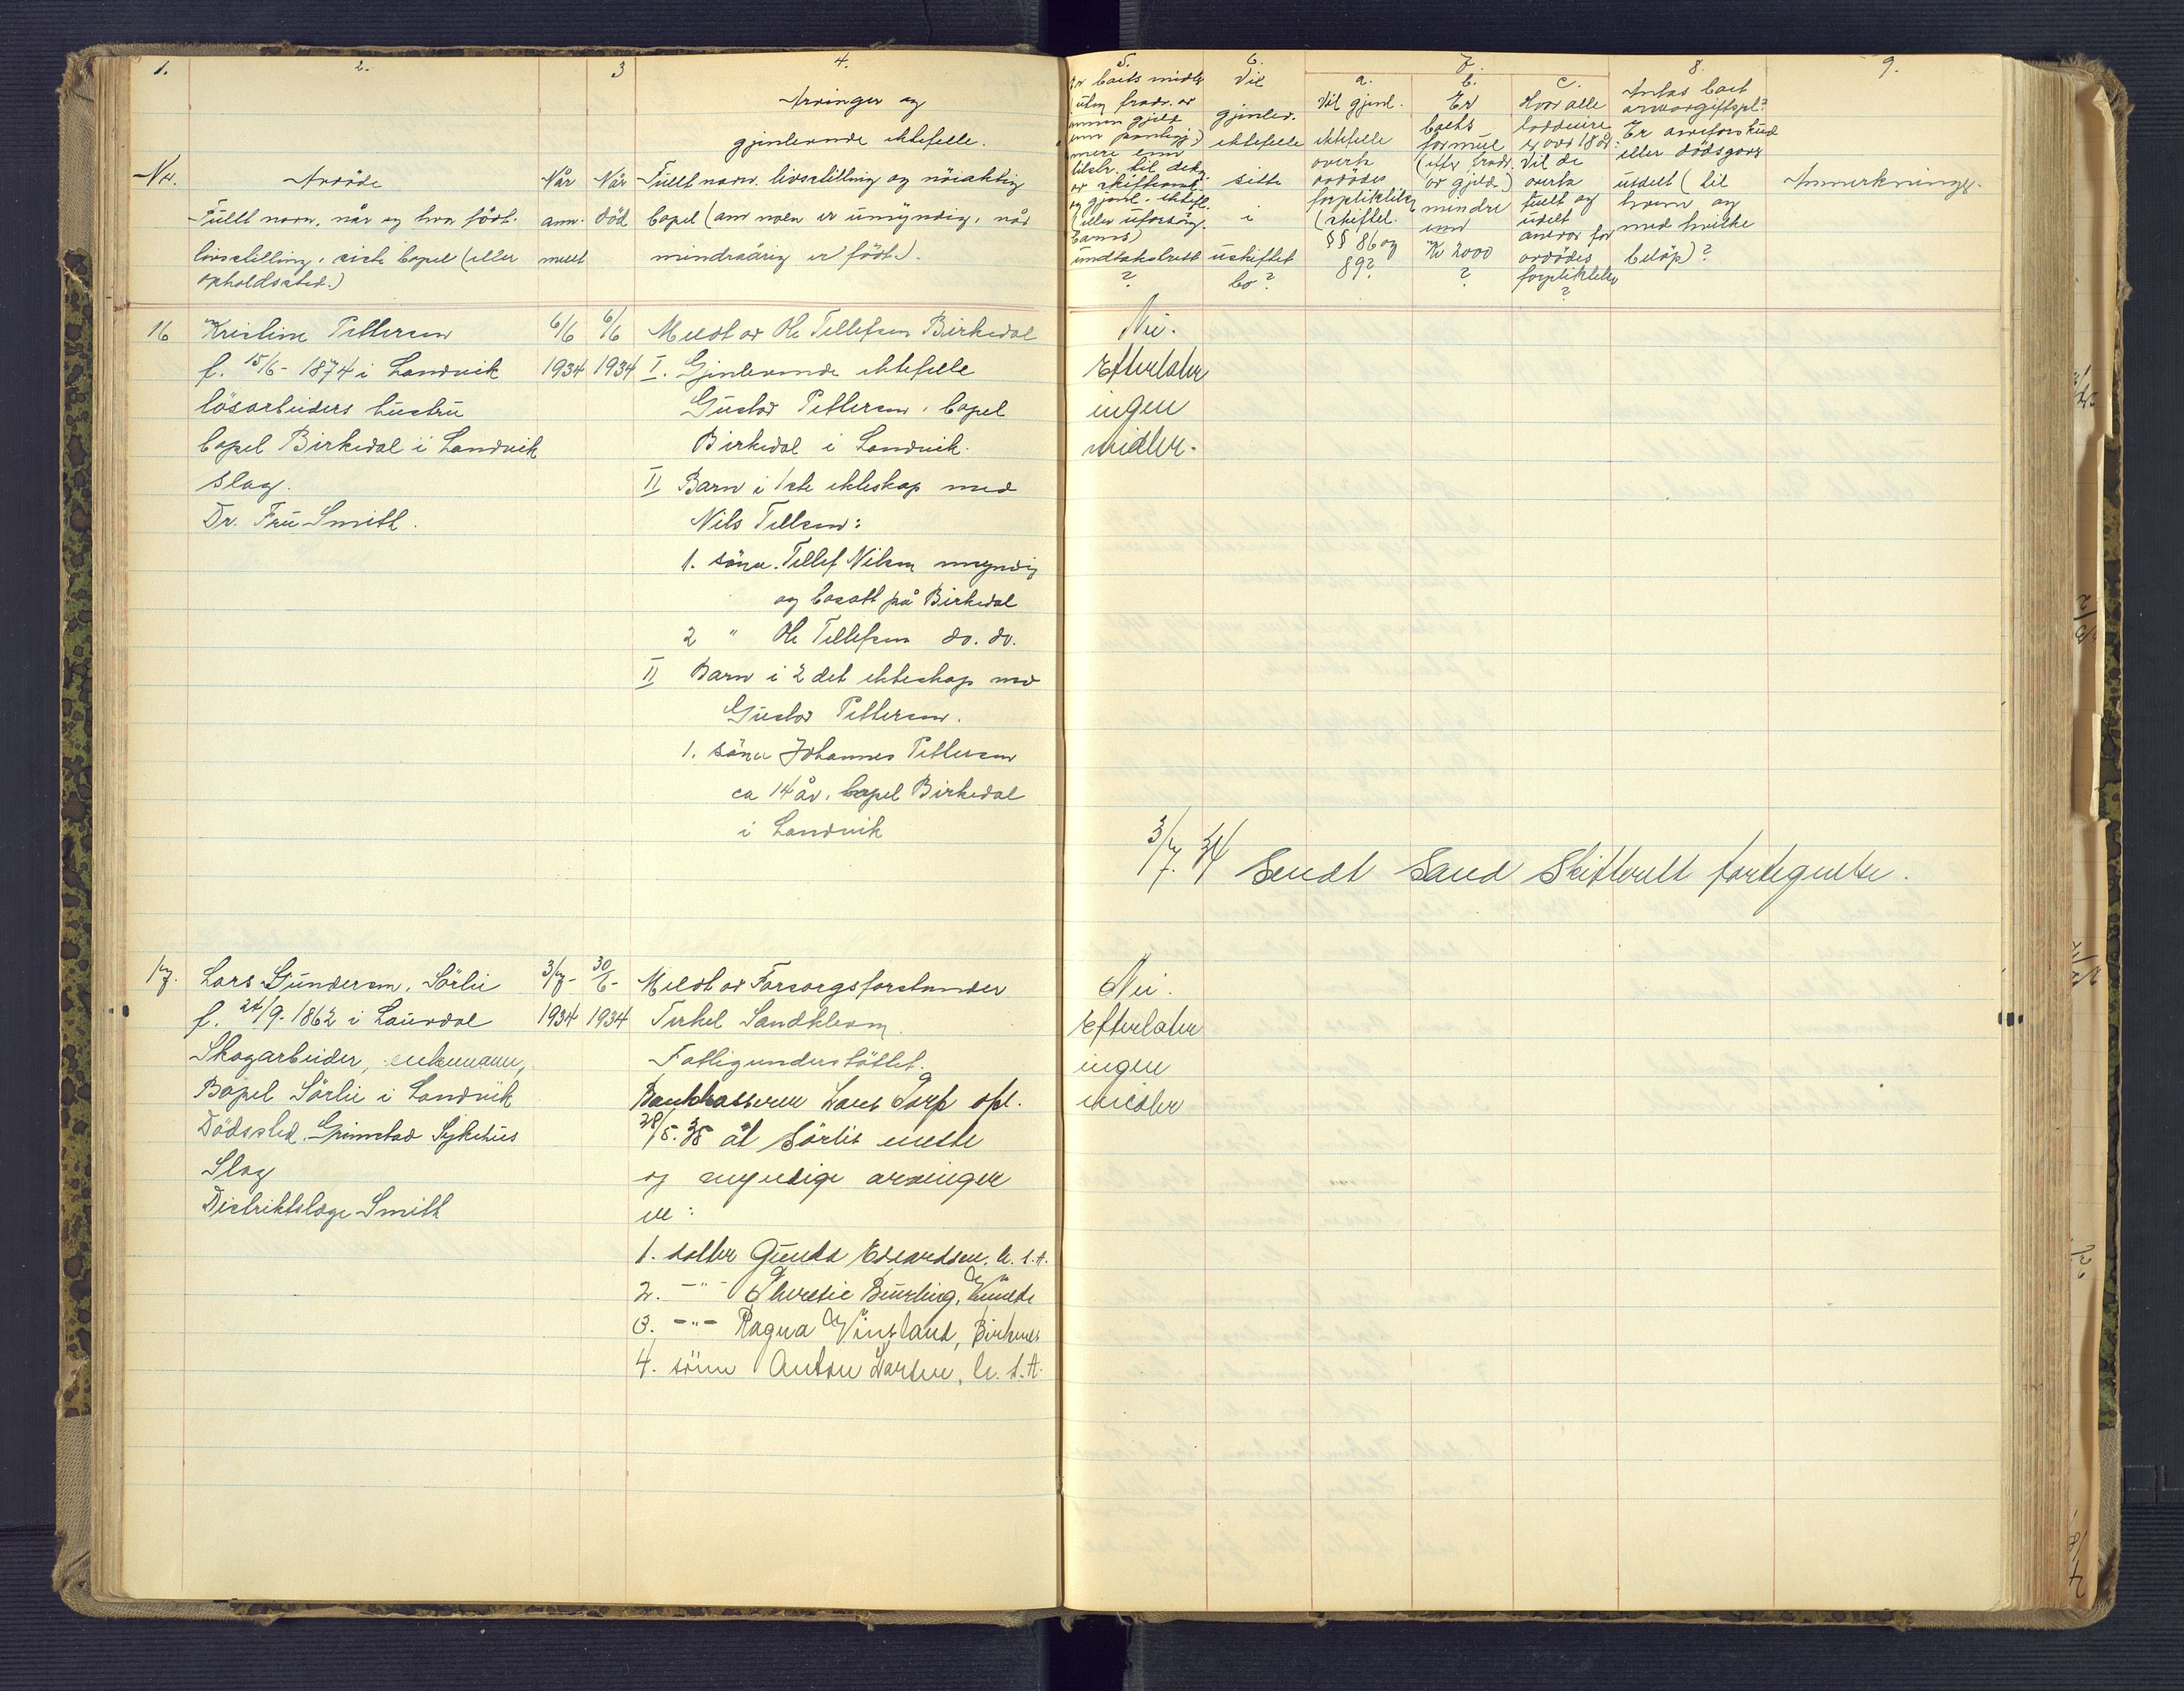 1. 2. 3 4. 5. 6. 7. 8. 9.
Nr.
Avdöde
Fullt navn, når og hvor födt.
livsstilling, siste bopel (eller
opholdssted.)
Når
anmeldt
Når
död
Arvinger og
gjenlevende ektefelle.
Fullt navn. livsstilling og nöiaktig
bopel (om noen er umyndig, når
mindreårig er födt.)
Er boets midler
uten fradr. av
annen gjeld
enn pantegj.)
mere enn
tilstr. til dekn.
av skifteomk.
og gjenl. ektefl.
(eller uforsörg.
barns)
undtaksrett
?
Vil
gjenlev.
ektefelle
sitte
i
uskiftet
bo?
a.
Vil gjenl.
ektefelle
overta
avdödes
forpliktelser
(skiftel.
§§ 86 og
89?
b.
Er
boets
formue
(efter fradr.
av gjeld.)
mindre
enn
Kr 2000
?
c.
Hvor alle
loddeiere
er over 18 år:
Vil de
overta
fullt og
udelt
ansvar for
avdödes
forpliktelser
?
Antas boet
arveavgiftspl.?
Er arveforskudd
eller dödsgave
utdelt (til
hvem og
med hvilke
belöp)?
Anmerkninger.
16
Kristine Pettersen
f. 15/6 - 1874 i Landvik
lösarbeiders hustru
bopel Birkedal i Landvik
slag.
Dr. Fru Smith.
6/6
1934
6/6
1934
Meldt av Ole Tellefsen Birkedal
I. Gjenlevende ektefelle
Gustav Pettersen, bopel
Birkedal i Landvik.
II Barn i 1ste ekteskap med
Nils Tellsen:
1. sönn. Tellef Nilsen myndig
og bosatt på Birkedal
2 " Ole Tellefsen do. do.
II Barn i 2 det ekteskap med
Gustav Pettersen.
1. sönn Johannes Pettersen
ca 14 år, bopel Birkedal
i Landvik
Nei.
Efterlater
ingen
midler.
3/7. 34 Sendt Sand Skifterett fortegnelse.
17.
Lars Gundersen, Sörlie
f. 24/9 - 1862 i Laurdal
Skogarbeider, enkemann,
Bopel Sörlie i Landvik
Dödssted. Grimstad Sykehus
Slag
Distriktslæge Smith
3/7 -
1934
30/6 -
1934
Meldt av Forsorgsforstander
Terkel Sandkleiv.
Fattigunderstöttet.
Bankkasserer Lars Torp opl.
28/5. 35 at Sörlis eneste
og myndige arvinger
er:
1. datter Gunda Edvardsen, U. S. A.
2. -"- Theresie
3. -"- Ragna Vinsland, Birkenes
4. sönn Anton Larsen, U. S. A.
Nei.
Efterlater
ingen
midler